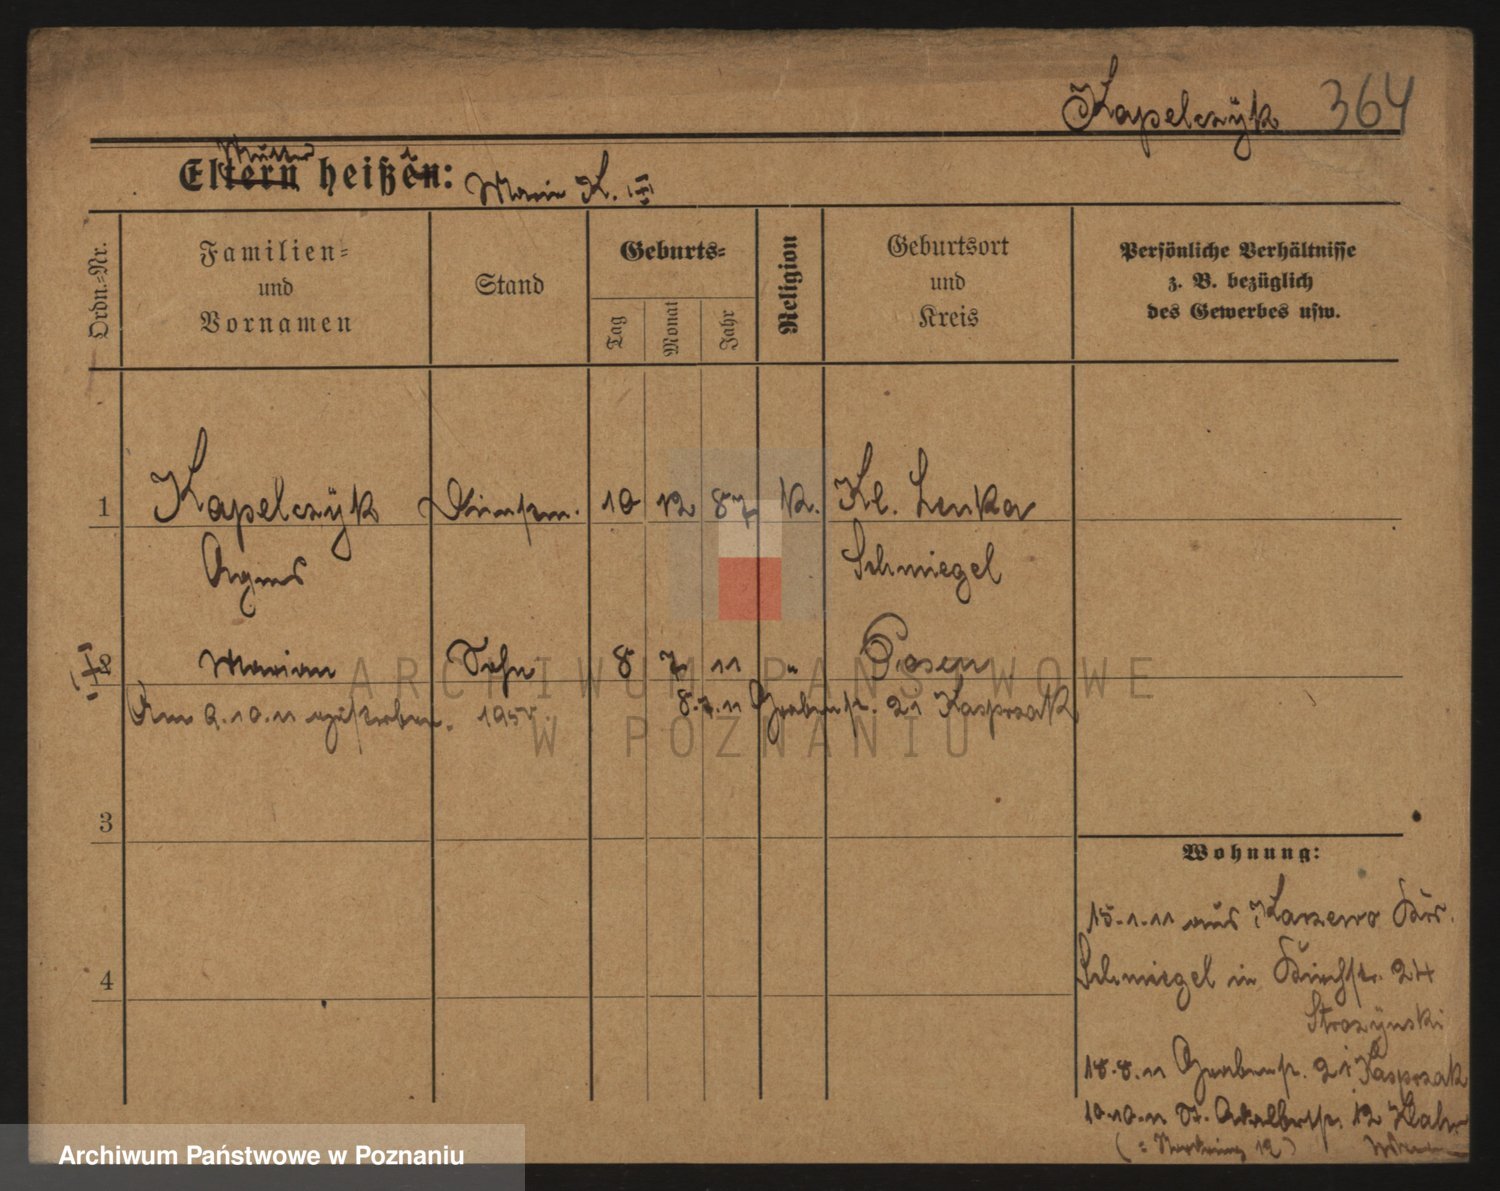 Kapelczÿk 364
Mutter
Eltern heißen:
Marie K.
Ordn.-Nr.
Familien-
und
Vornamen
Stand
Geburts-
Tag
Monat
Jahr
Religion
Geburtsort
und
Kreis
Persönliche Verhältnisse
z. B. bezüglich
des Gewerbes usw.
1 Kapelczÿk Dienstm. 10 12 87 K. Kl. Lenka
Agnes Schmiegel
2 Marian Sohn 8 7 11 " Posen
Am 9.10.11 verstorben. 8.7.11 Grabenstr. 21 Kasprzak
3
4
Wohnung:
15.1.11 aus Karzewo Krs.
Schmiegel in Kirchstr. 24
Strozÿnski
18.8.11 Grabenstr. 21 Kasprzak
10.10.11 St. Adalbertstr. 12
ARCHIWUM PAŃSTWOWE
W POZNANIU
Archiwum Państwowe w Poznaniu